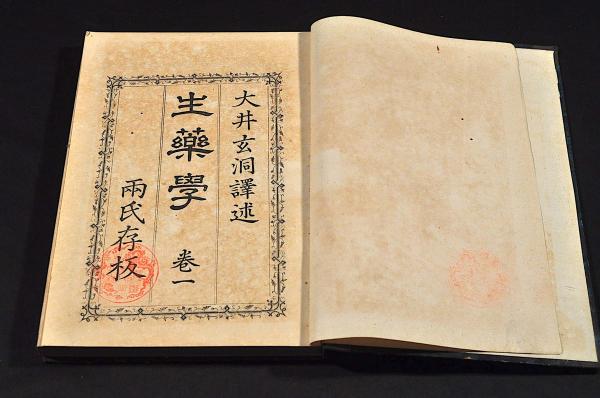 大井玄洞譯述
生藥學 卷一
兩氏存板